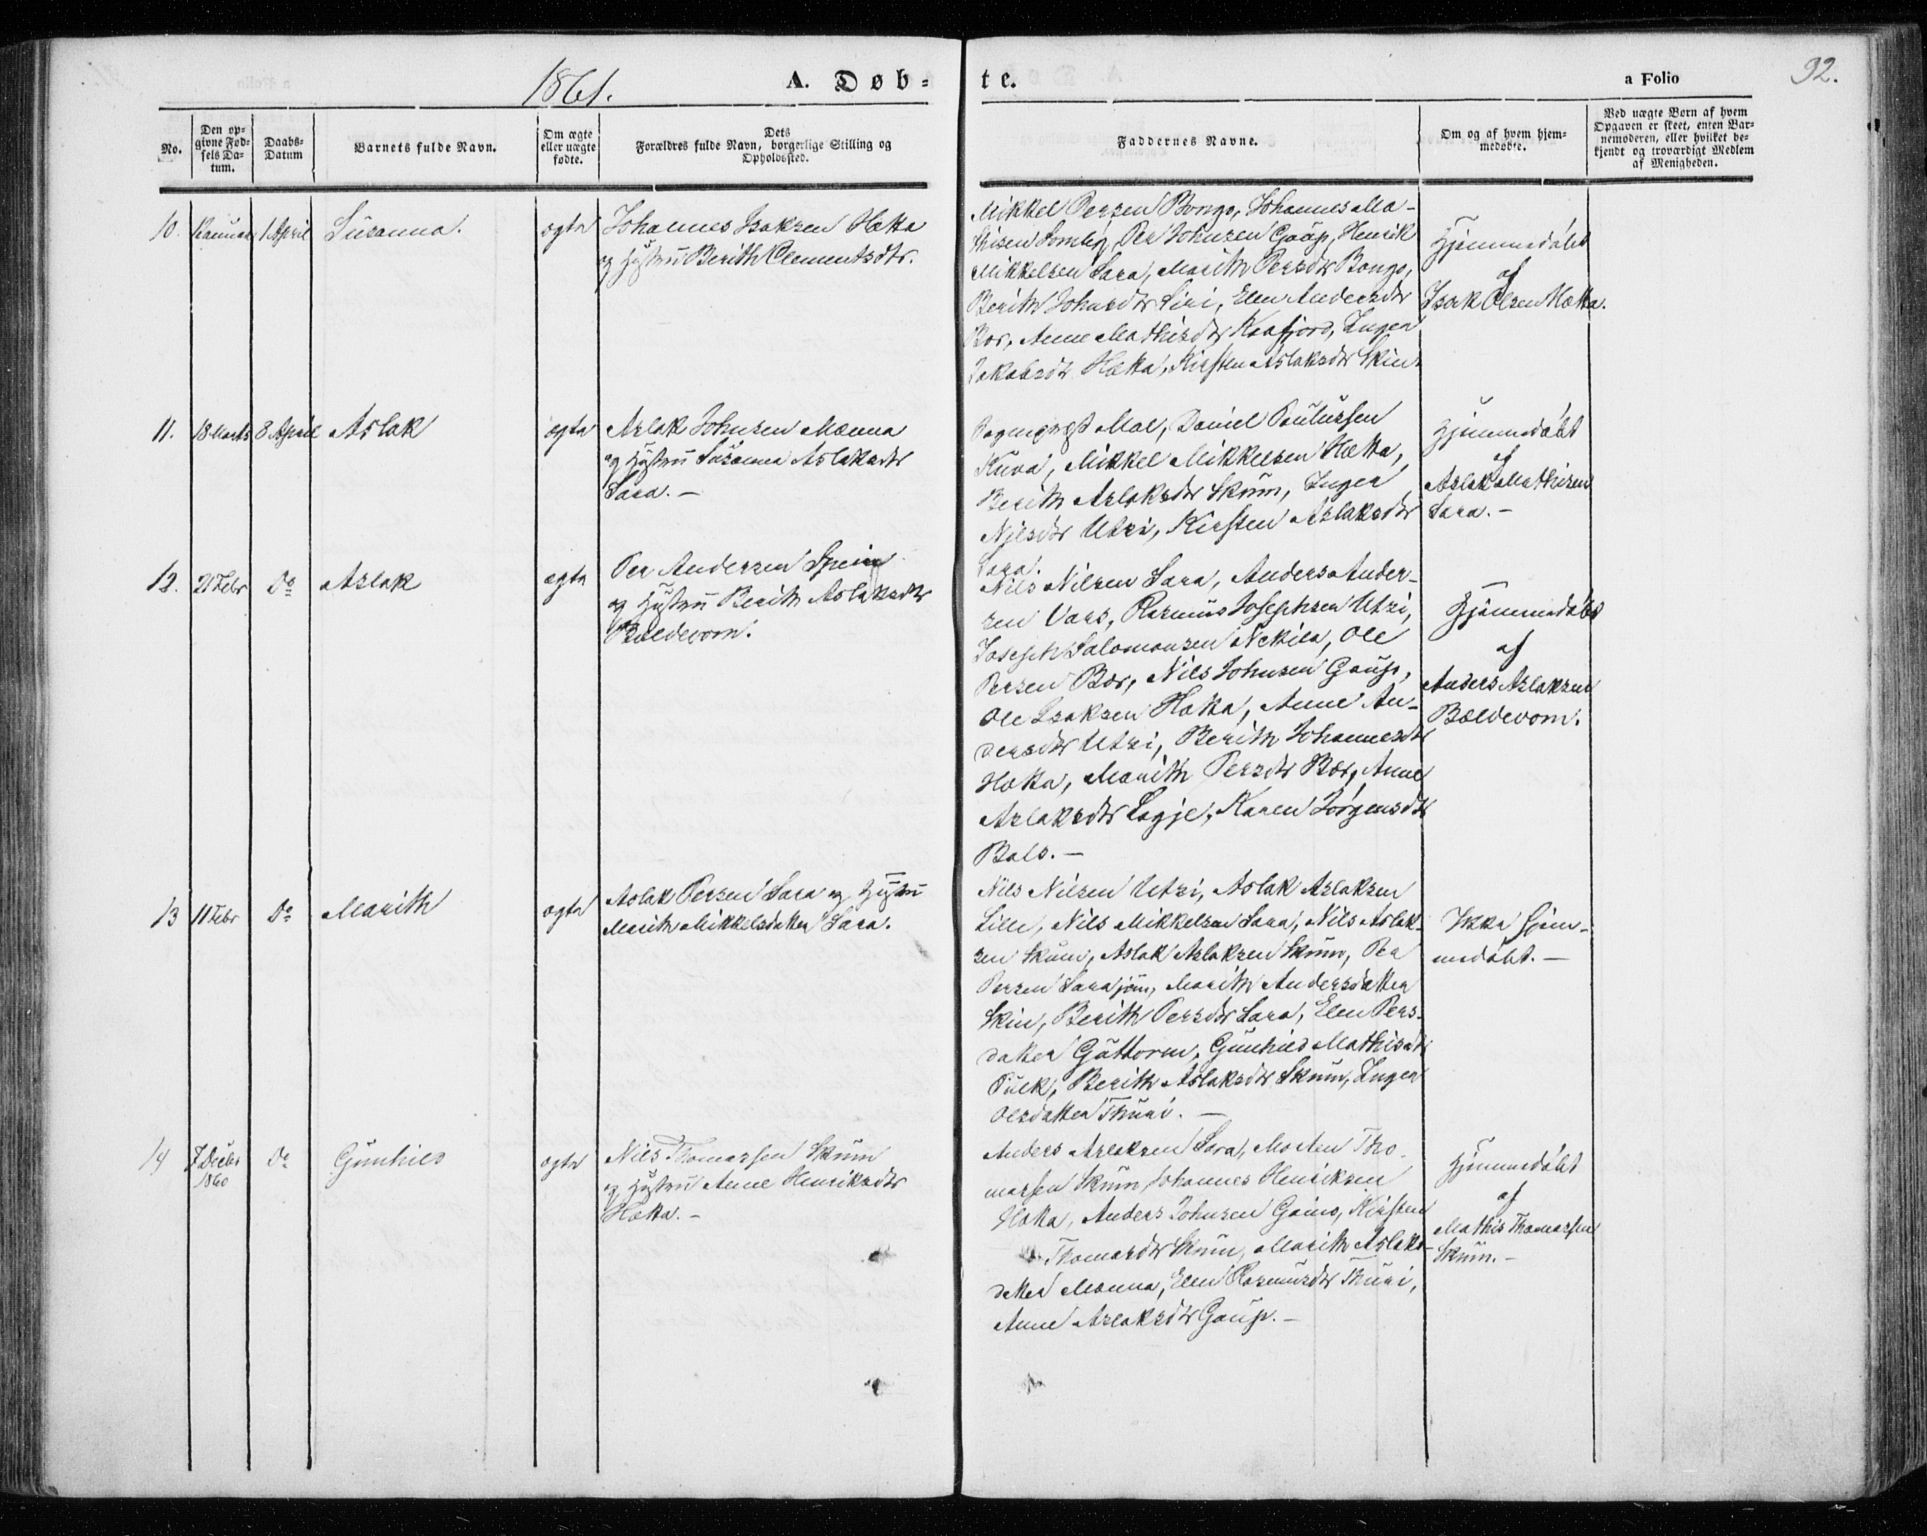 1861.
A. Døb-
te.
a Folio
92.
No.
Den op-
givne Fød-
sels Da-
tum.
Daabs-
Datum
Barnets fulde Navn.
Om ægte
eller uægte
fødte.
Dets
Forældres fulde Navn, borgerlige Stilling og
Opholdssted.
Faddernes Navne.
Om og af hvem hjem-
medøbte.
Ved uægte Børn af hvem
Opgaven er skeet, enten Bar-
nemoderen, eller hvilket be-
kjendt og troværdigt Medlem
af Menigheden.
10.
1 April
Susanna.
ægte
Johannes Isaksen Hætta
og Hustru Berith Clementsdtr.
Mikkel Persen Bongo, Johannes Ma-
thisen Somby, Per Johnsen Gaup, Henrik
Mikkelsen Sara, Marith Persdtr Bongo,
Berith Johnsdtr Siri, Elen Andersdtr
Bær, Anne Mathisdtr Kaafjord, Inger
Jakobsdtr Hætta, Kirsten Aslaksdtr Skin.
Hjemmedøbt
af
Isak Olsen Hætta.
11.
18 Marts
8 April
Aslak
ægte
Aslak Johnsen Mænna
og Hustru Susanna Aslaksdtr
Sara. -
Mal, Daniel Paulussen
Kuva, Mikkel Mikkelsen Hætta,
Berith Aslaksdtr Skum, Inger
Nilsdtr Utzi, Kirsten Aslaksdtr
Sara.
Hjemmedøbt
af
Aslak Mathisen
Sara. -
12.
21 Febr
Do
Aslak
ægte
Per Andersen
og Hustru Berith Aslaksdtr
Bældevom.
Nils Nilsen Sara, Anders Ander-
sen Vars, Rasmus Josephsen Utzi,
Joseph Salomonsen Nekila, Ole
Persen Bær, Nils Johnsen Gaup,
Ole Isaksen Hætta, Anne An-
dersdtr Utzi, Berith Johannesdtr
Hætta, Marith Persdtr Bær, Anne
Aslaksdtr Logje, Karen Jørgensdtr
Bals. -
Hjemmedøbt
af
Anders Aslaksen
Bældevom.
13
11 Febr
Do
Marith
ægte
Aslak Persen Sara og Hustru
Marith Mikkelsdatter Sara.
Nils Nilsen Utzi, Aslak Aslaksen
Lille, Nils Mikkelsen Sara, Nils Aslak-
sen Skum, Aslak Aslaksen Skum, Per
Persen Sara jun, Marith Andersdatter
Skin, Berith Persdtr Sara, Elen Pers-
datter Guttorm, Gunhild Mathisdtr
Pulk, Berith Aslaksdtr Skum, Inger
Olsdatter Thuri. -
Ikke hjem-
medøbt. -
14
7 Decbr
1860
Do
Gunhild
ægte
Nils Thomassen Skum
og Hustru Anne Henriksdtr
Hætta. -
Anders Aslaksen Sara, Morten Tho-
massen Skum, Johannes Henriksen
Hætta, Anders Johnsen Gaino, Kirsten
Thomasdtr Skum, Marith Aslaks-
datter Mænna, Elen Rasmusdtr Thuri,
Anne Aslaksdtr Gaup. -
Hjemmedøbt
af
Mathis Thomassen
Skum. -